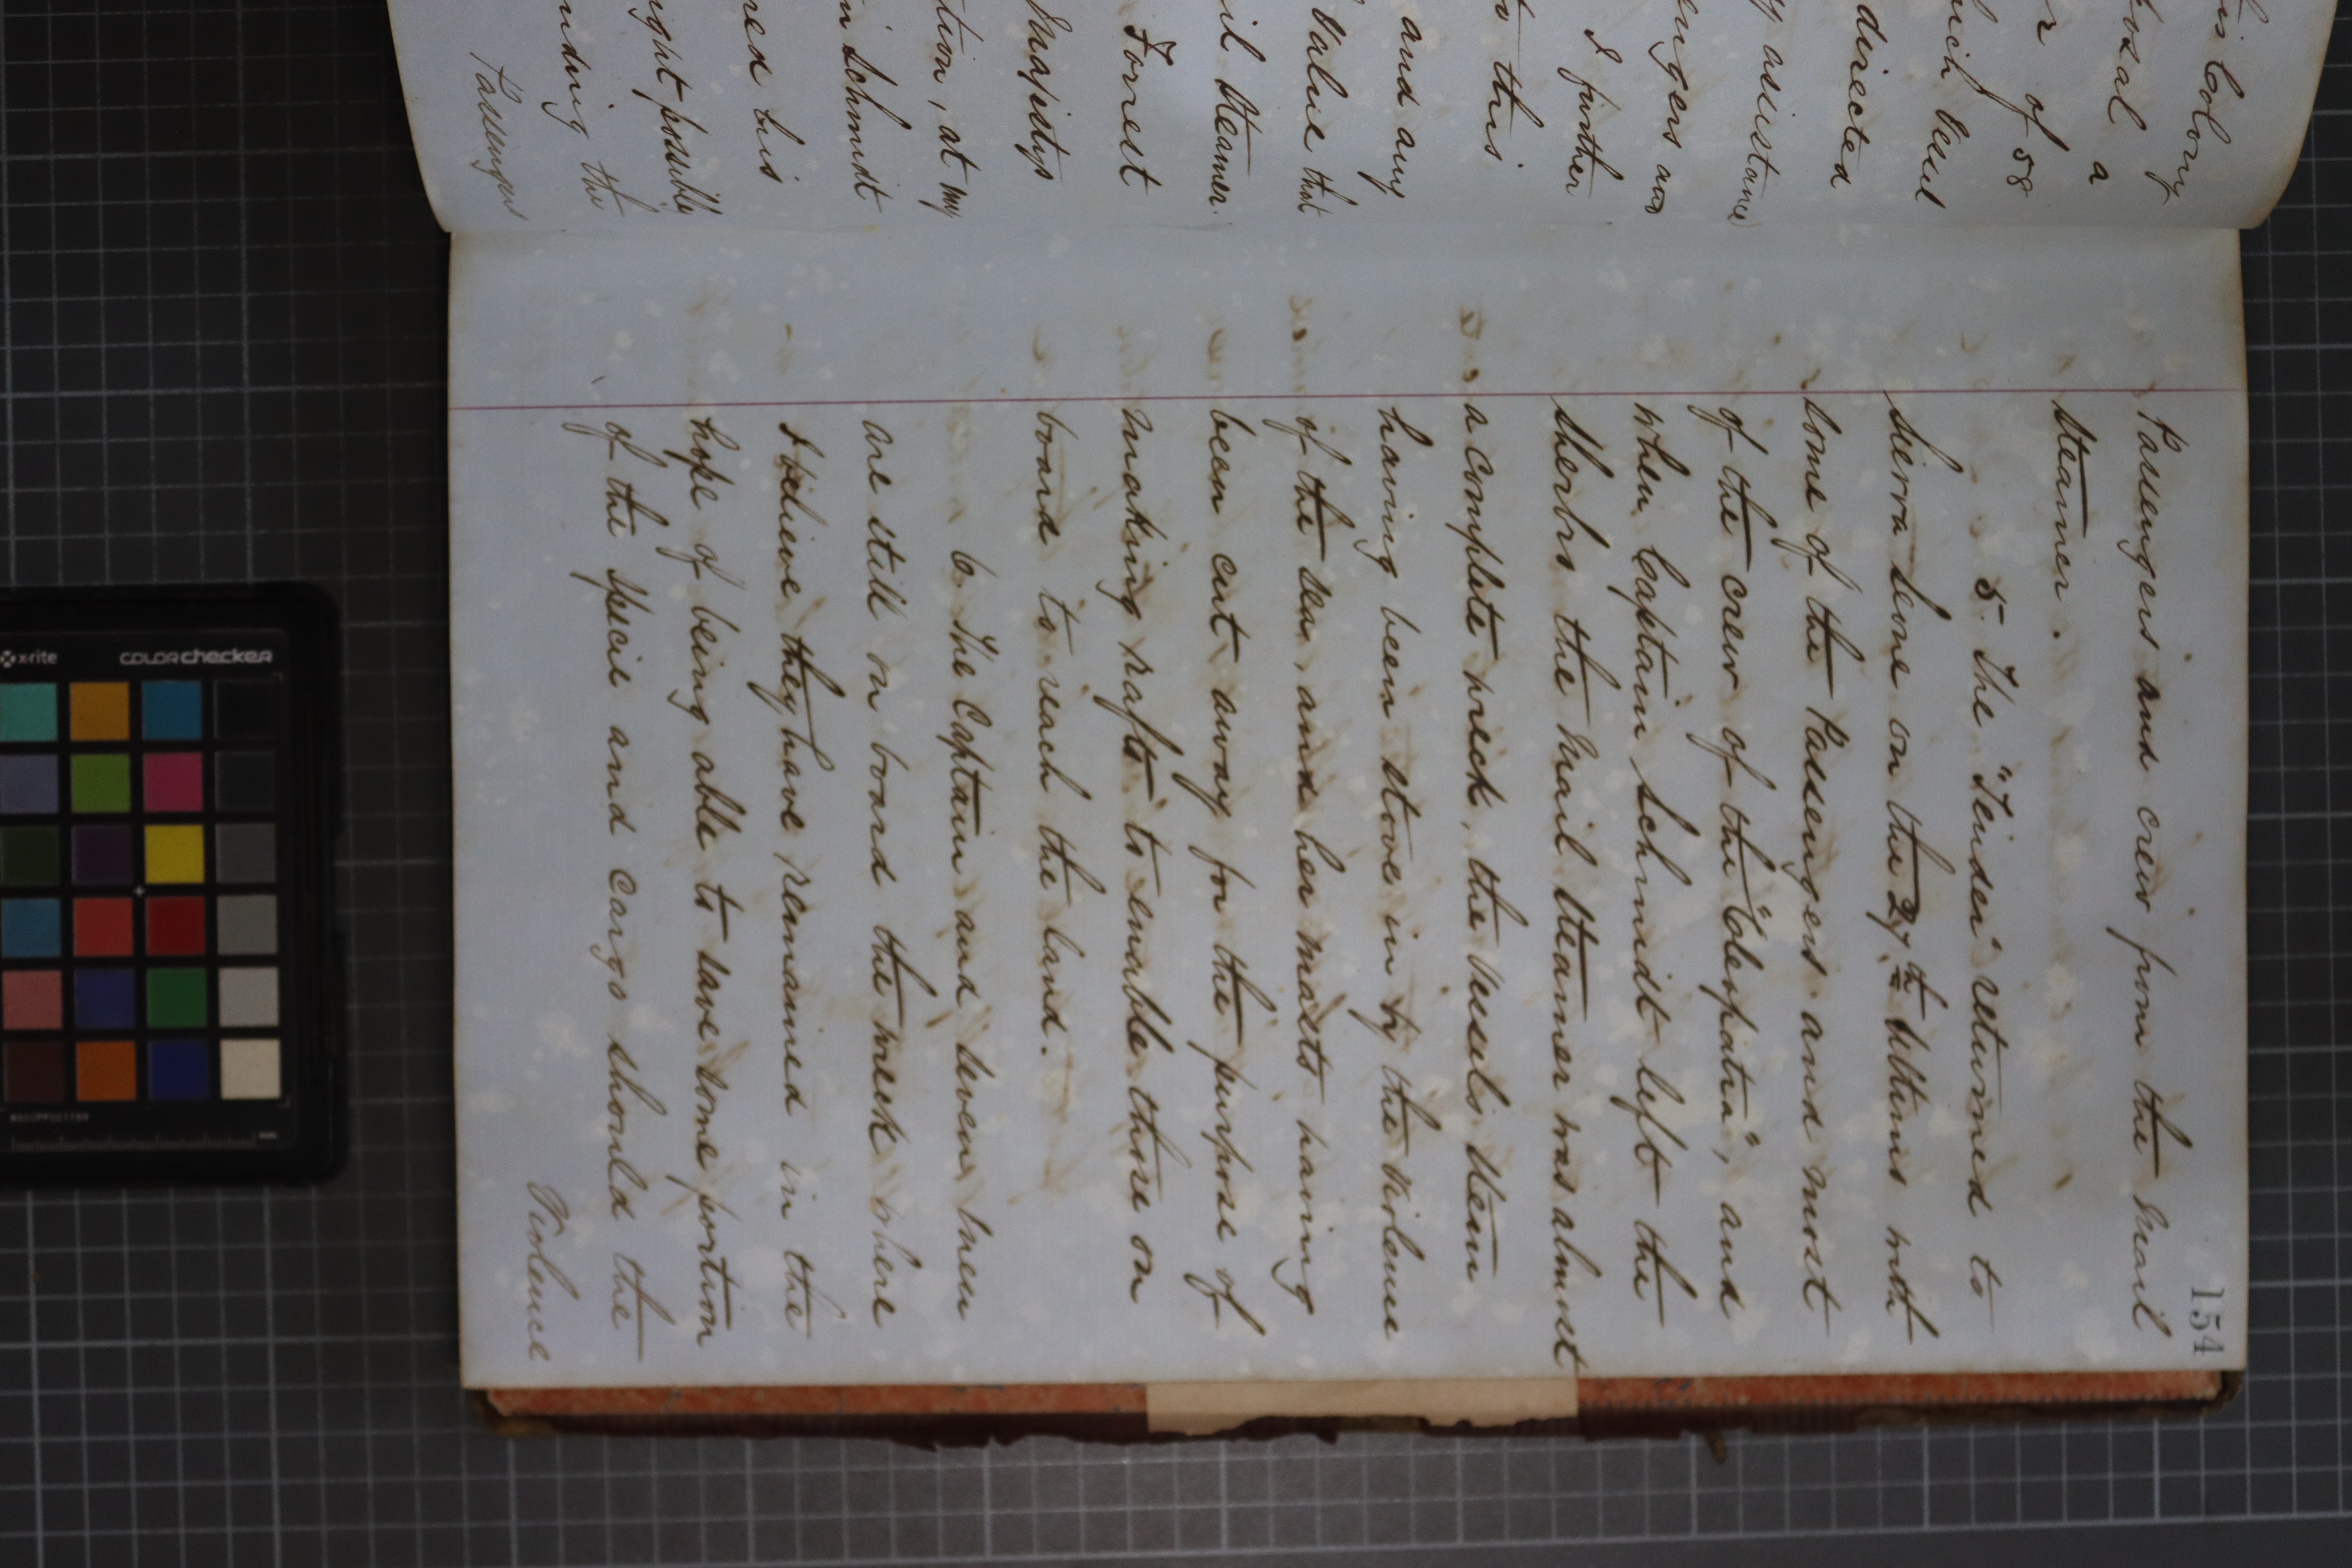 his Colony
posal a
r of 58
ich Vessel
directed
y assistance
engers and
I further
o this
and any
Value that
il Steamer.
Forrest
Majestys
tion, at my
n Schmidt
red his
ight possibly
nding the
Passengers
154
Passengers and crew from the Mail
Steamer.
5. The "Teider" returned to
Sierra Leone on the 27th Ultimo with
some of the Passengers and most
of the crew of the "Cleopatra", and
when Captain Schmidt left the
Sherbro the Mail Steamer was almost
a complete wreck, the Vessels Stern
having been stove in by the violence
of the sea, and her masts having
been cut away for the purpose of
making rafts to enable those on
board to reach the land.
6. The Captain and seven men
are still on board the wreck where
I believe they have remained in the
hope of being able to save some portion
of the specie and cargo should the
Violence